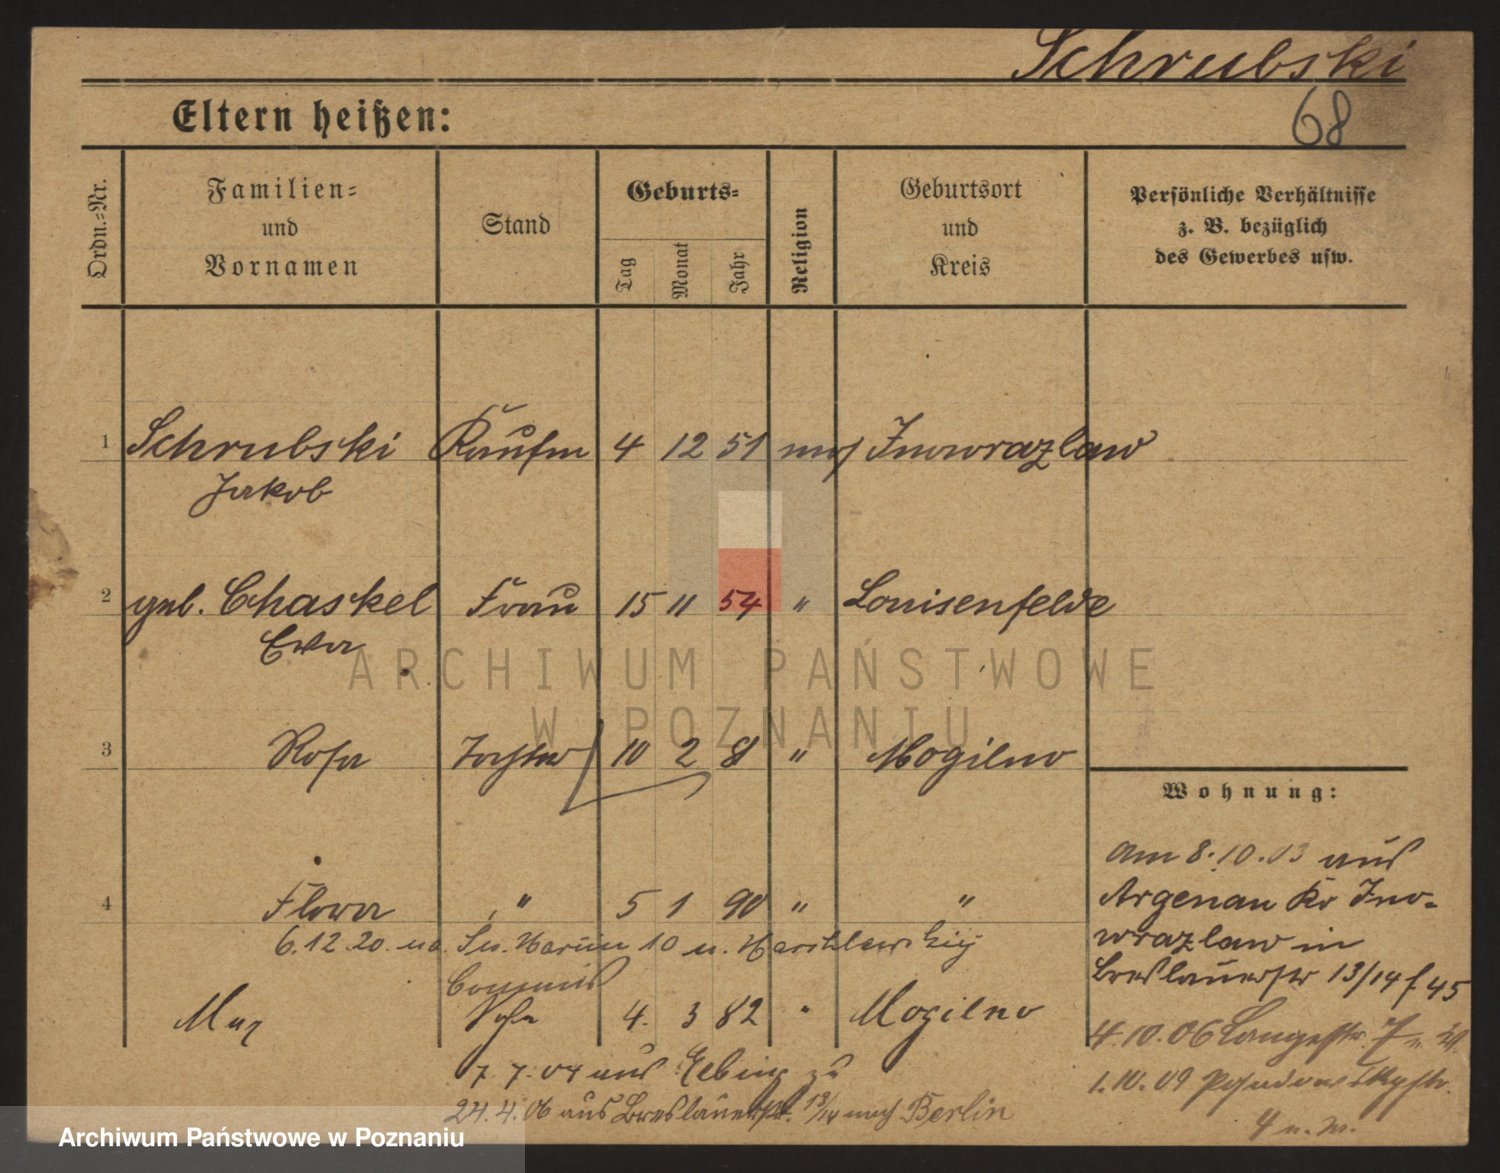 Schrubski
68
Eltern heißen:
Ordn.=Nr.
Familien=
und
Vornamen
Stand
Geburts=
Tag
Monat
Jahr
Religion
Geburtsort
und
Kreis
Persönliche Verhältnisse
z. B. bezüglich
des Gewerbes usw.
1 Schrubski Kaufm 4 12 51 mos Inowrazlaw
Jakob
2 geb. Chaskel Frau 15 11 54 " Louisenfelde
Ewa
3 Rosa Tochter 10 2 81 " Mogilno
Wohnung:
am 8.10.03 aus
Argenau Kr Ino-
wrazlaw in
Breslauerstr 13/14 f 45
4.10.06 Langestr. 7
1.10.09
4 u.
4 Flora " 5 1 90 " "
6.12.20. 10 u.
Commis
Max Sohn 4. 3 82 " Mogilno
7. 7. 04 aus Elbing zu
24.4.06 aus Breslauerstr. 13/14 nach Berlin
ARCHIWUM PAŃSTWOWE
W POZNANIU
Archiwum Państwowe w Poznaniu